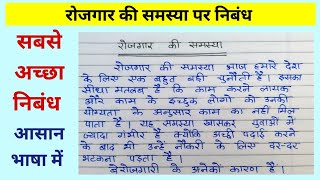 रोजगार की समस्या पर निबंध
सबसे
अच्छा
निबंध
आसान
भाषा में
रोजगार की समस्या
रोजगार की समस्या आज हमारे देश
के लिए एक बहुत बड़ी चुनौती है। इसका
सीधा मतलब है कि काम करने लायक
और काम के इच्छुक लोगों को उनकी
योग्यता के अनुसार काम का नहीं मिल
पाता है। यह समस्या खासकर युवाओं में
ज्यादा गंभीर है क्योंकि अच्छी पढ़ाई करने
के बाद भी उन्हें नौकरी के लिए दर-दर
भटकना पड़ता है।
बेरोजगारी के अनेकों कारण है।